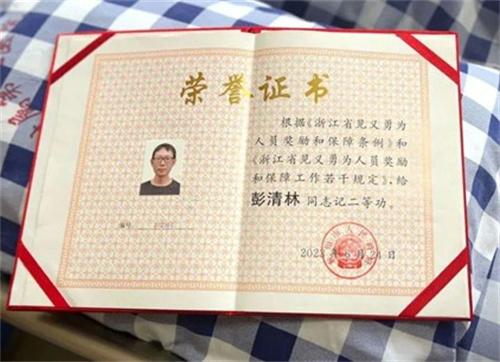 荣誉证书
编号：
根据《浙江省见义勇为
人员奖励和保障条例》和
《浙江省见义勇为人员奖励
和保障工作若干规定》，给
彭清林 同志记二等功。